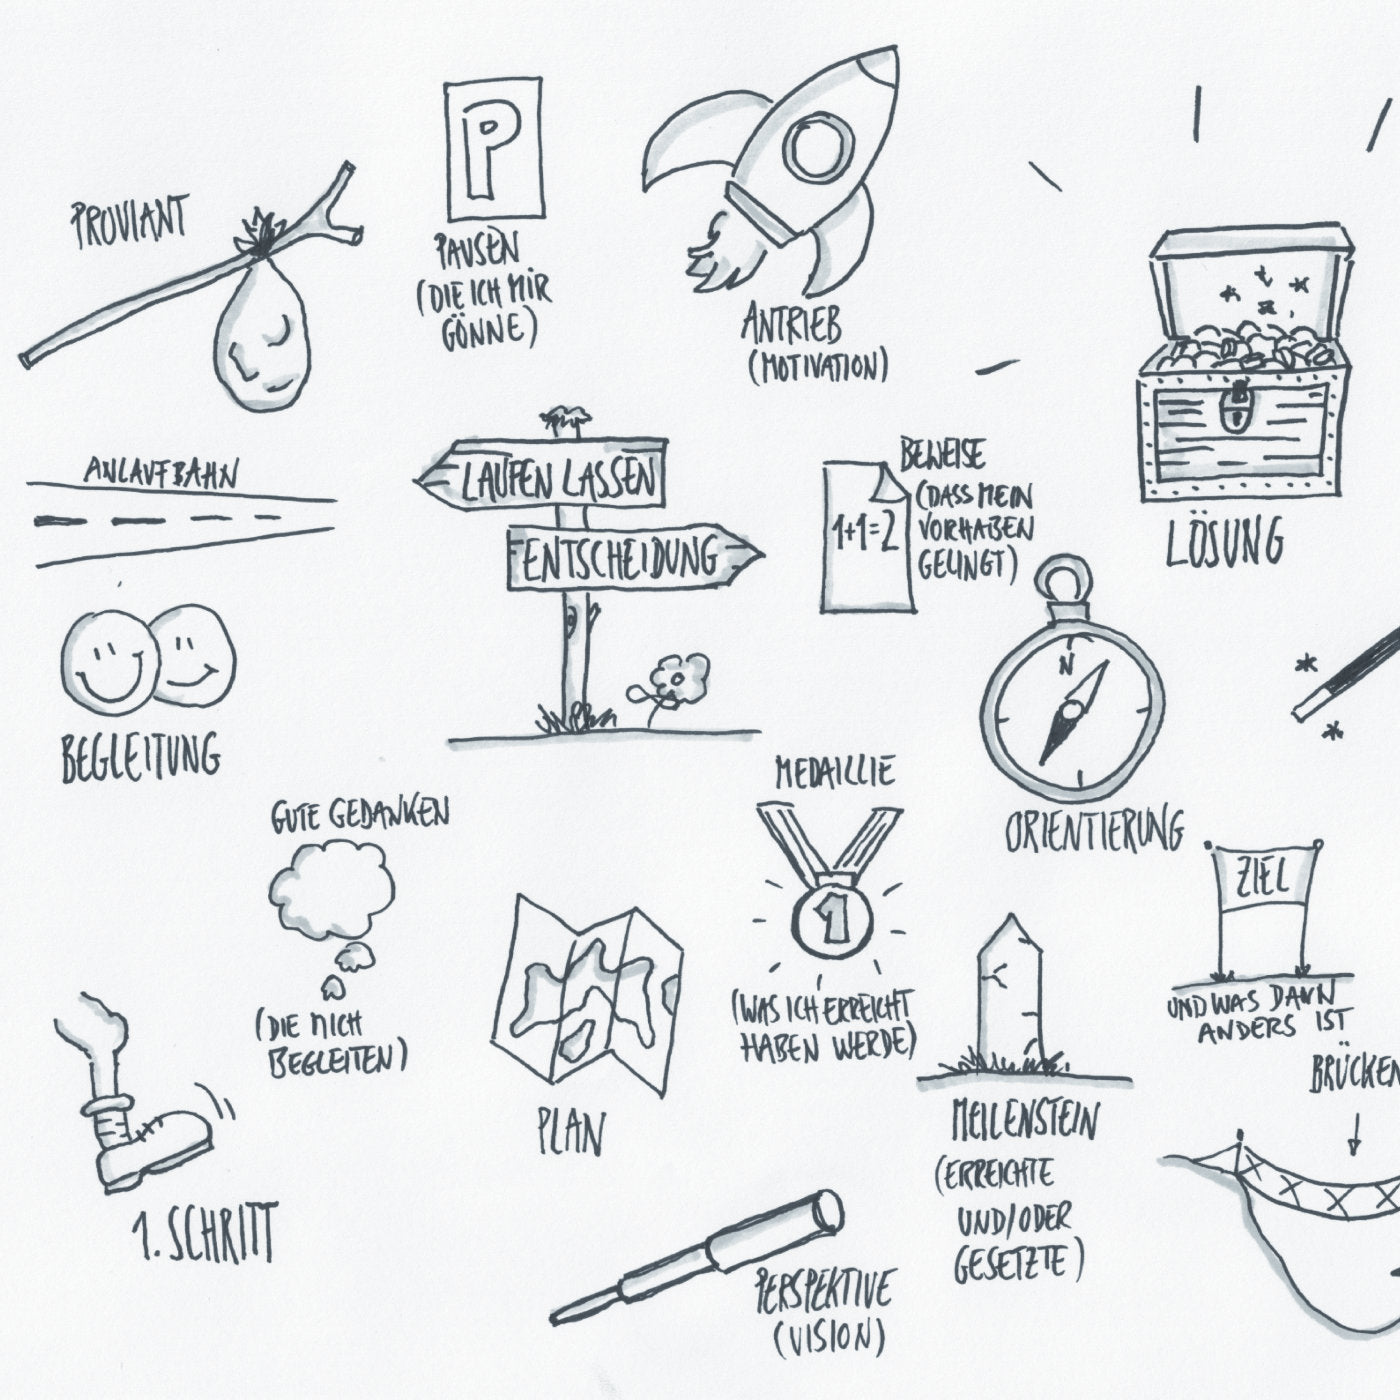 PROVIANT
P
PAUSEN
(DIE ICH MIR
GÖNNE)
ANTRIEB
(MOTIVATION)
LÖSUNG
ANLAUFBAHN
LAUFEN LASSEN
ENTSCHEIDUNG
1+1=2
BEWEISE
(DASS MEIN
VORHABEN
GELINGT)
BEGLEITUNG
N
ORIENTIERUNG
GUTE GEDANKEN
(DIE MICH
BEGLEITEN)
MEDAILLIE
1
(WAS ICH ERREICHT
HABEN WERDE)
ZIEL
UND WAS DANN
ANDERS IST
BRÜCKEN
PLAN
MEILENSTEIN
(ERREICHTE
UND/ODER
GESETZTE)
1. SCHRITT
PERSPEKTIVE
(VISION)